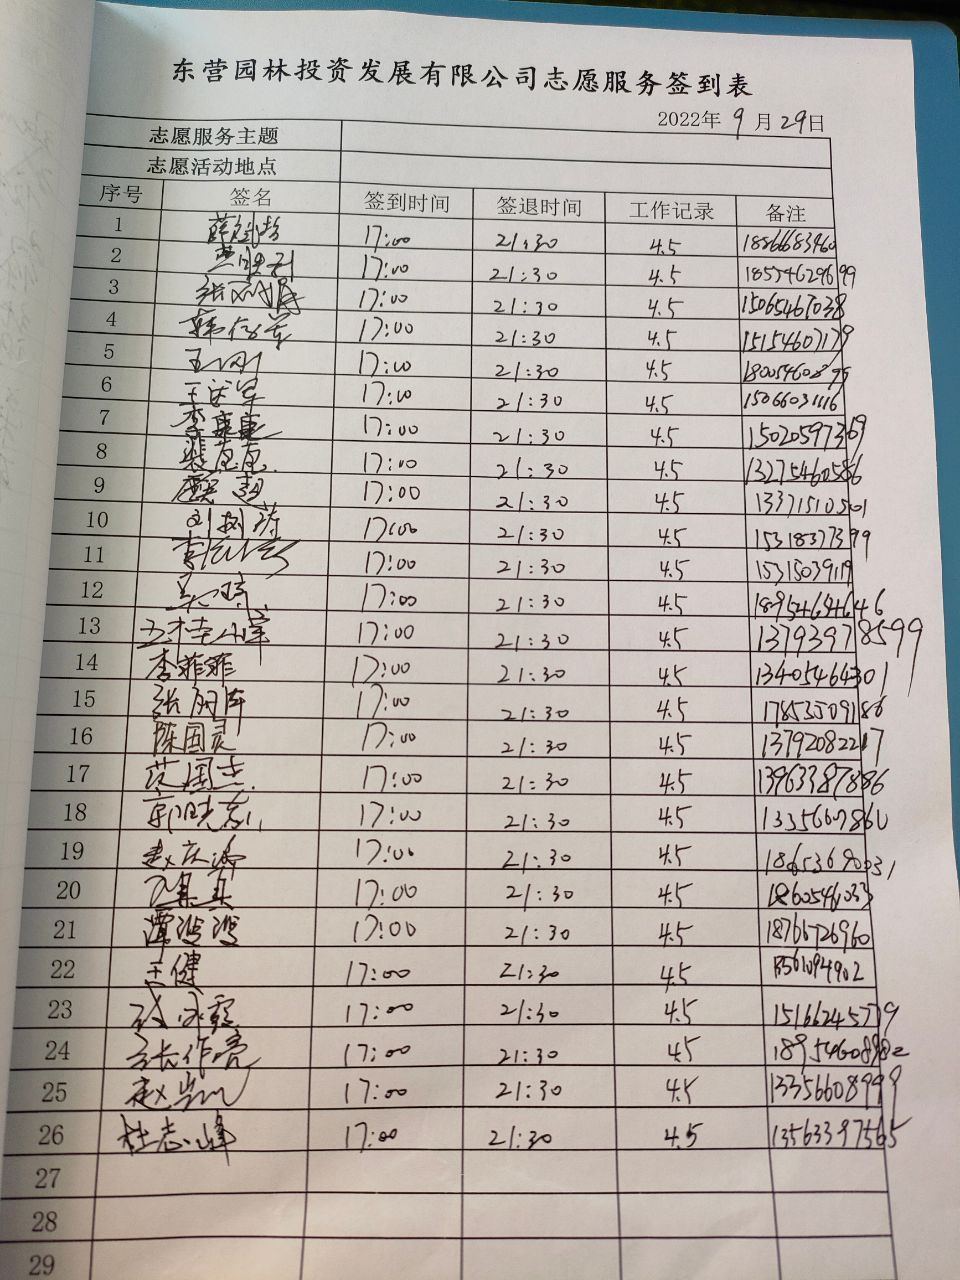 东营园林投资发展有限公司志愿服务签到表
2022年 9 月 29日
志愿服务主题
志愿活动地点
序号 签名 签到时间 签退时间 工作记录 备注
1 17:00 21:30 4.5 18866683460
2 17:00 21:30 4.5 18574629699
3 17:00 21:30 4.5 15065467038
4 17:00 21:30 4.5 15154607179
5 王刚 17:00 21:30 4.5 18005460875
6 17:00 21:30 4.5 15066031116
7 李康康 17:00 21:30 4.5 15020597369
8 17:00 21:30 4.5 13275460586
9 17:00 21:30 4.5 13371510501
10 刘树涛 17:00 21:30 4.5 15318377399
11 17:00 21:30 4.5 15315039119
12 17:00 21:30 4.5 18954694646
13 17:00 21:30 4.5 13793978599
14 李菲菲 17:00 21:30 4.5 13405464301
15 17:00 21:30 4.5 17853509186
16 陈国灵 17:00 21:30 4.5 13792082217
17 范国杰 17:00 21:30 4.5 13963387886
18 17:00 21:30 4.5 13356607860
19 17:00 21:30 4.5 18653690031
20 17:00 21:30 4.5 18605461033
21 谭滢滢 17:00 21:30 4.5 18765726960
22 王健 17:00 21:30 4.5 13561094902
23 17:00 21:30 4.5 15166245779
24 张作亮 17:00 21:30 4.5 18954608982
25 赵岩 17:00 21:30 4.5 13356608999
26 杜志峰 17:00 21:30 4.5 13563397565
27
28
29